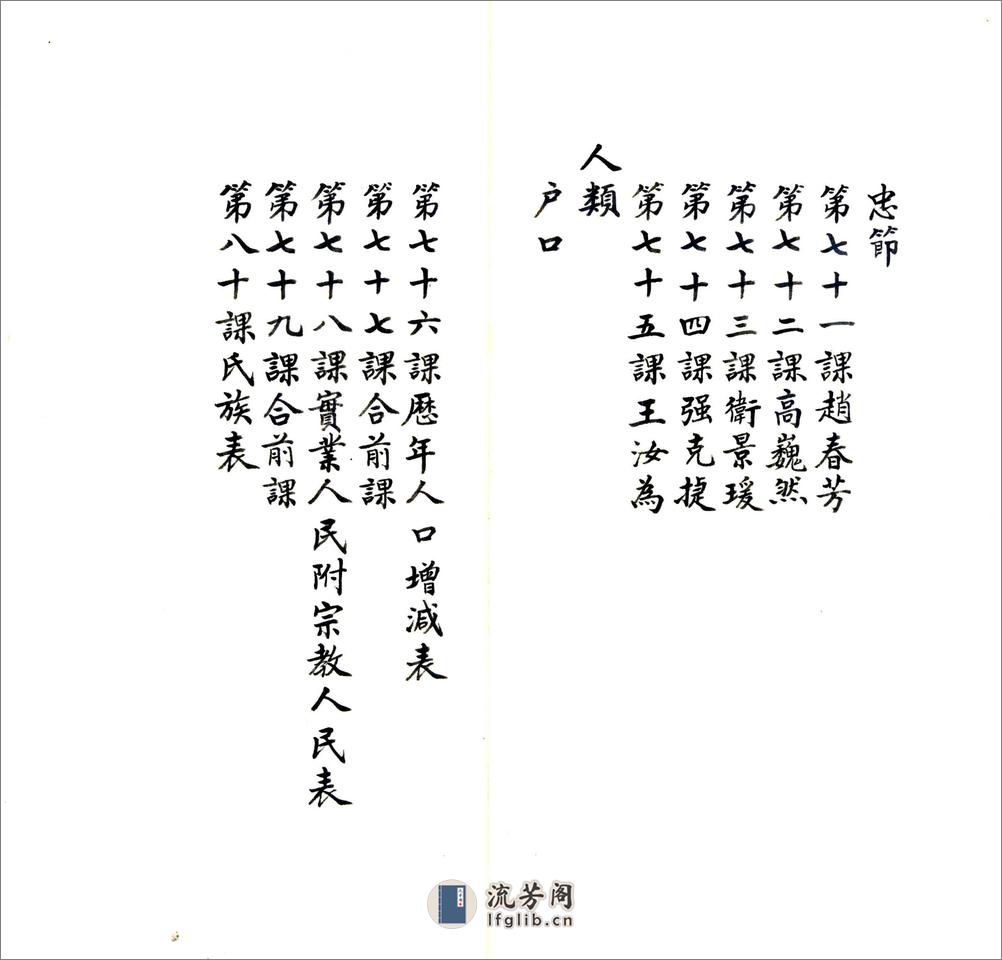 忠節
第七十一課趙春芳
第七十二課高巍然
第七十三課衛景瑗
第七十四課强克捷
第七十五課王汝為
人類
户口
第七十六課歷年人口增減表
第七十七課合前課
第七十八課實業人民附宗教人民表
第七十九課合前課
第八十課氏族表
流芳阁
lfglib.cn